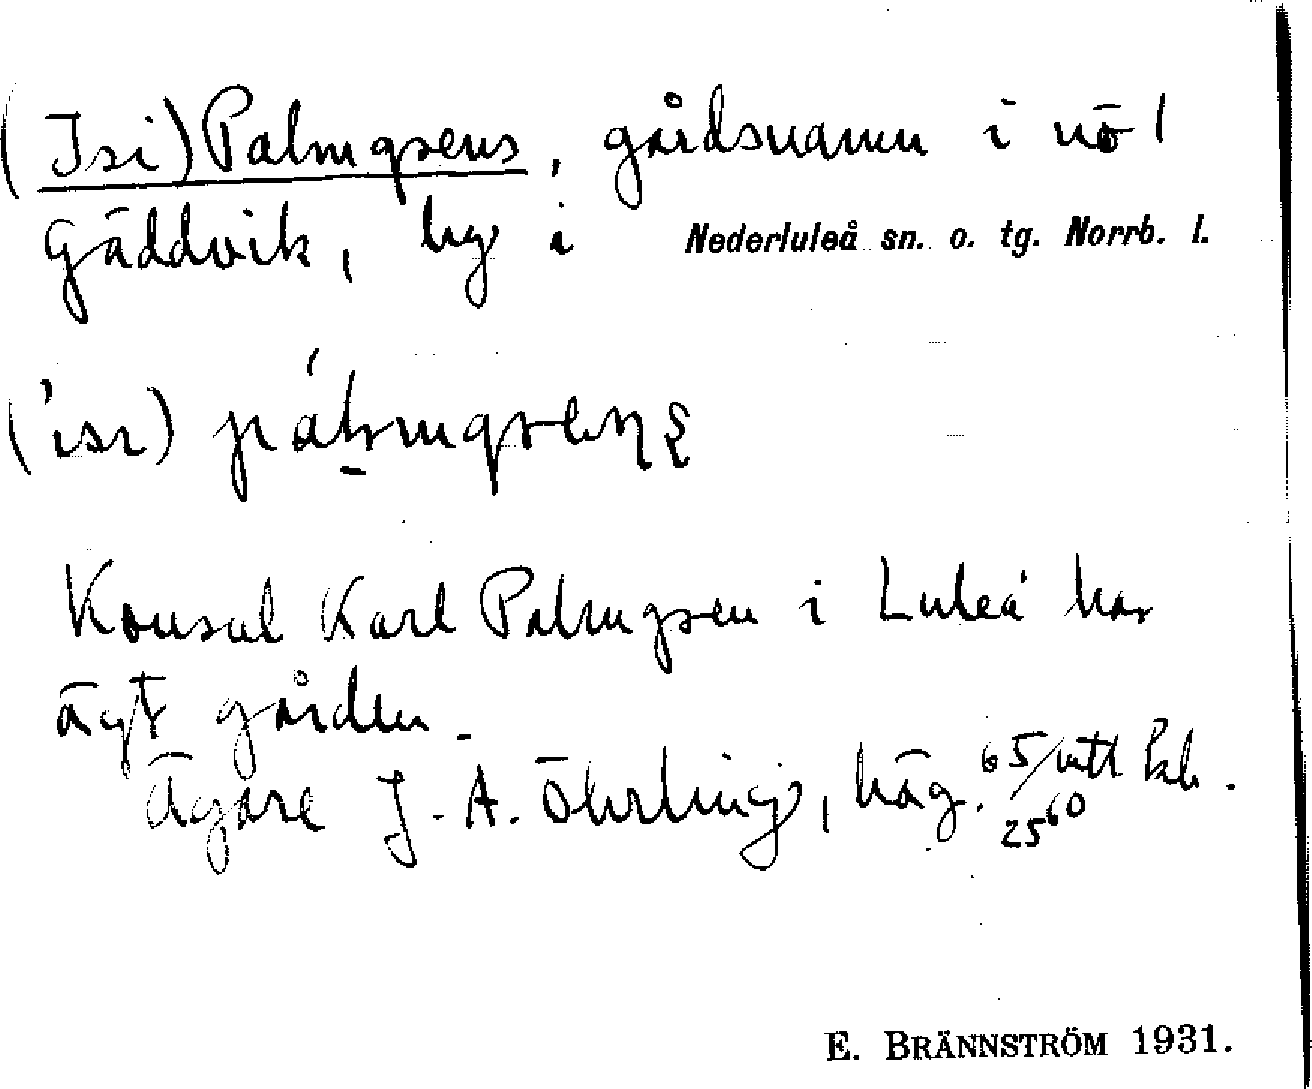 (Isi) Palmgrens, gårdsnamn i nö
Gäddvik, by i Nederluleå sn. o. tg. Norrb. l.
Konsul Karl Palmgren i Luleå har
ägt gården.
Ägare J. A. Öhrling, häg. 65/
2560
E. BRÄNNSTRÖM 1931.